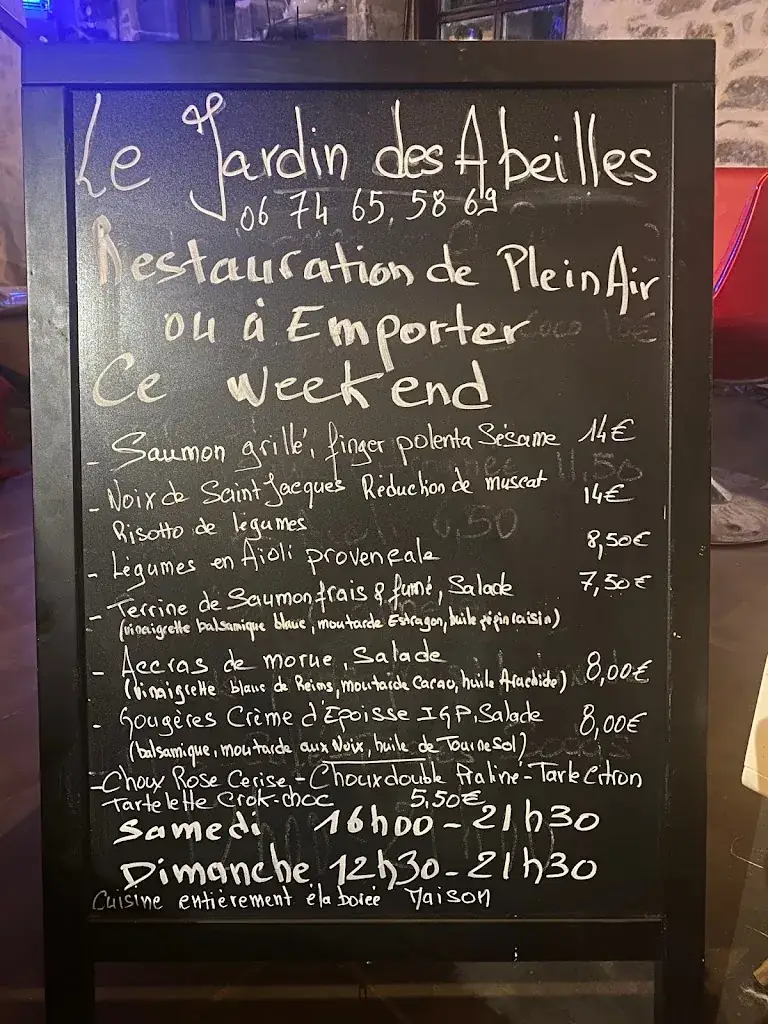 Le Jardin des Abeilles
06 74 65. 58 69
Restauration de Plein Air
ou à Emporter
Ce Week end
- Saumon grillé, finger polenta Sésame 14€
- Noix de Saint Jacques Réduction de muscat 14€
Risotto de légumes
- Légumes en Aïoli provençale 8,50€
- Terrine de Saumon frais & fumé, Salade 7,50€
(vinaigrette balsamique blanc, moutarde Estragon, huile pépin raisin)
- Accras de morue, Salade 8,00€
(vinaigrette blanc de Reims, moutarde Cacao, huile Arachide)
- Gougères Crème d'Epoisse IGP, Salade 8,00€
(balsamique, moutarde aux Noix, huile de Tournesol)
- Choux Rose Cerise - Choux double Praliné - Tarte Citron
Tartelette Crok-choc 5,50€
Samedi 16h00 - 21h30
Dimanche 12h30 - 21h30
Cuisine entièrement élaborée Maison